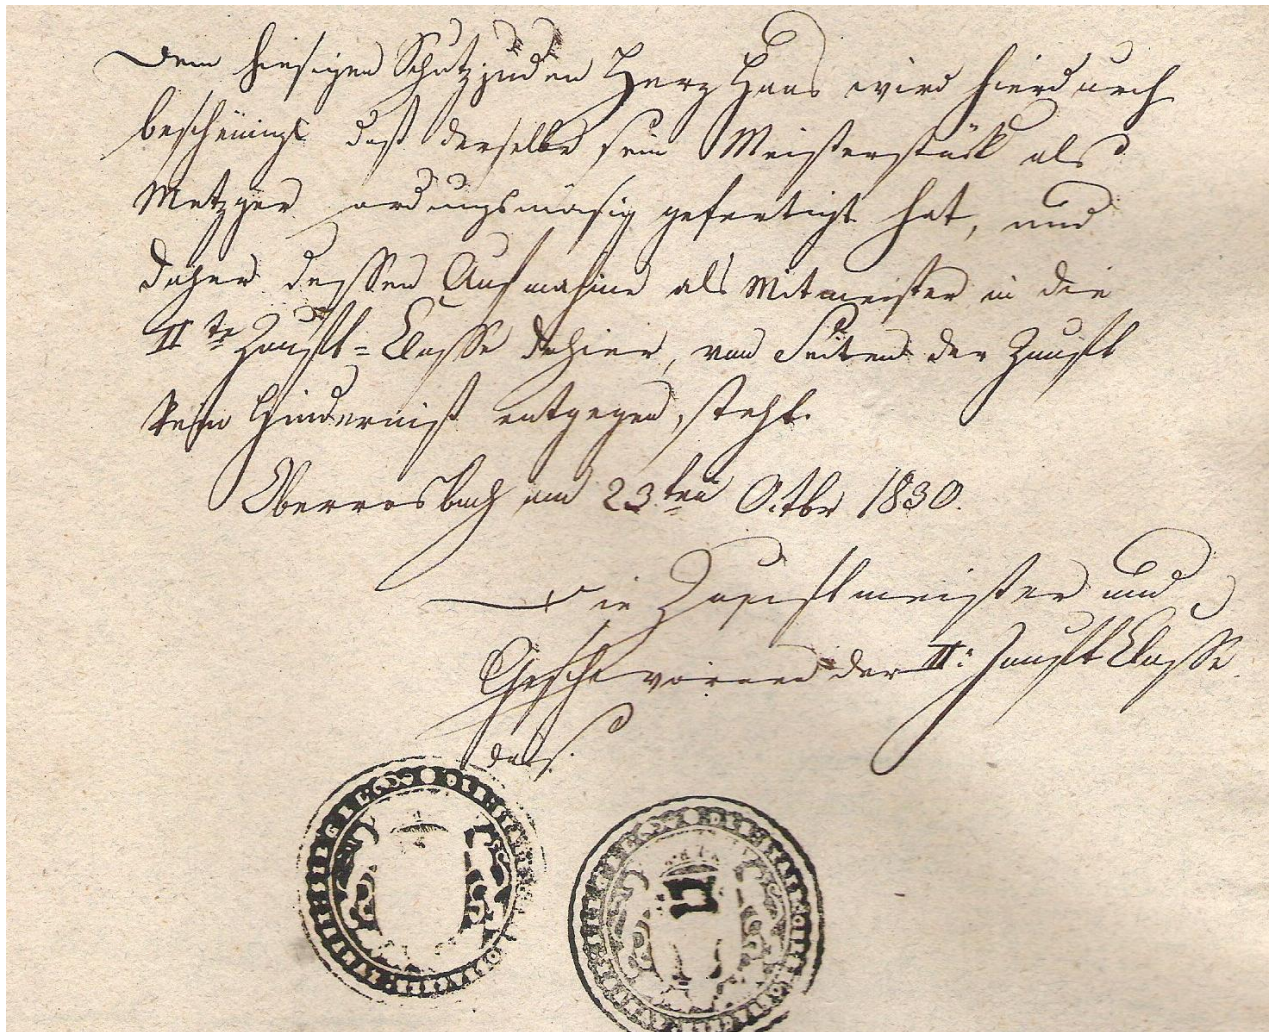 Dem hiesigen Schutzjuden Herz Haas wird hierdurch
bescheinigt daß derselbe sein Meisterstück als
Metzger ordungsmäsig gefertigt hat, und
daher dessen Aufnahme als Mitmeister in die
II te Zunft=Classe dahier, von Seiten der Zunft
kein Hinderniß entgegen steht.
Oberrosbach am 23ten Octbr 1830.
Die Zunftmeister und
Geschworenen der II: Zunft Classe
das.